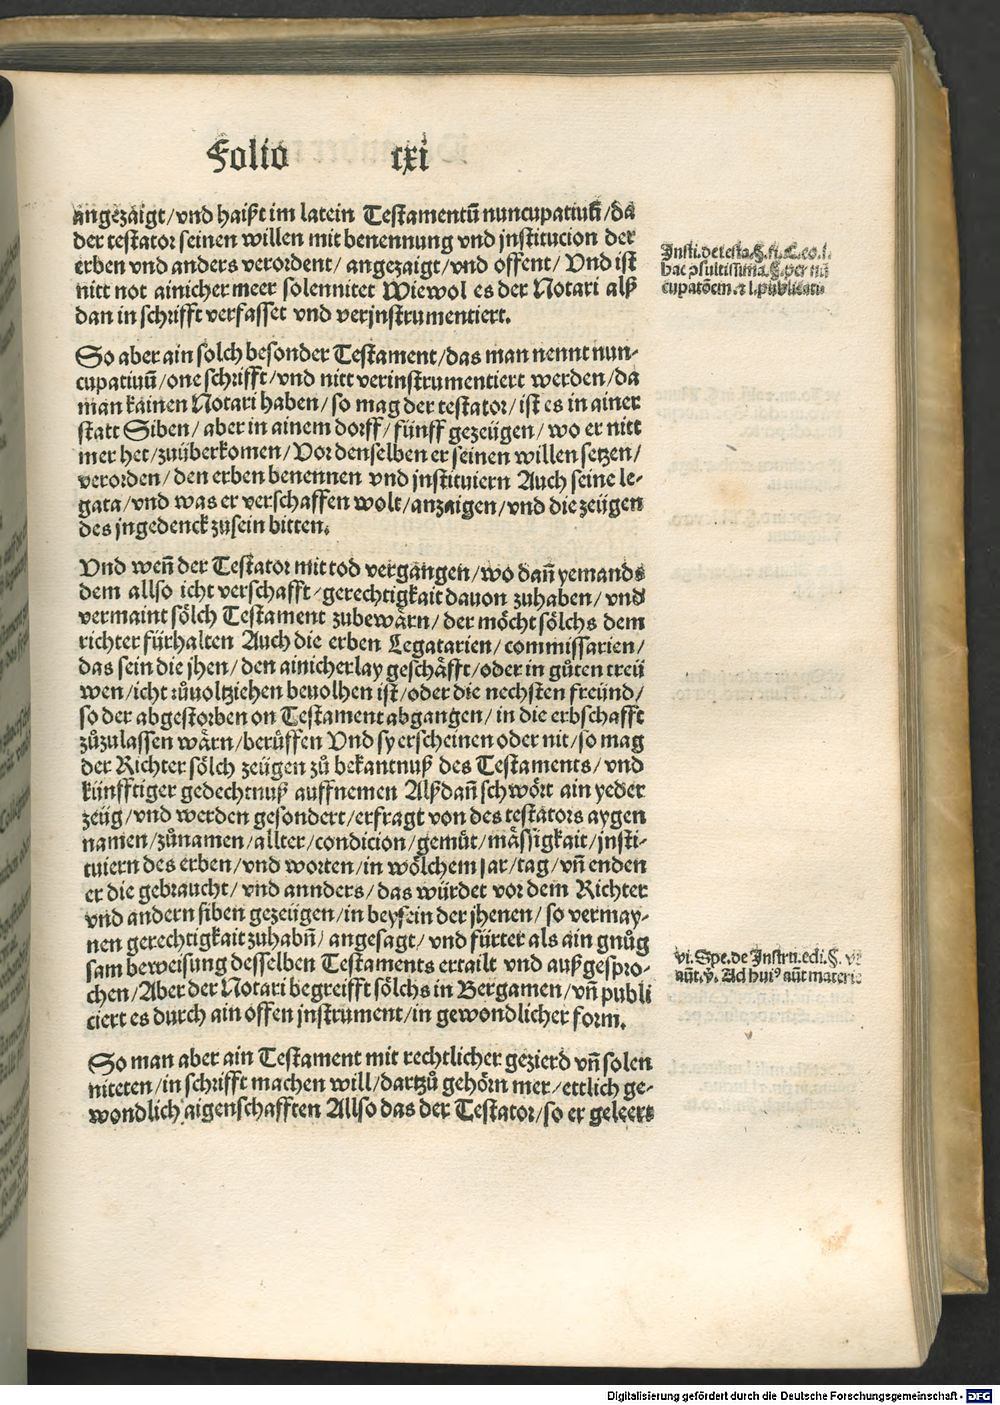 Folio cxi
angezaigt/vnd haißt im latein Testamentū nuncupatiuū/da
der testator seinen willen mit benennung vnd jnstitucion der
erben vnd anders verordent/ angezaigt/vnd offent/ Vnd ist
nitt not ainicher meer solennitet Wiewol es der Notari alß
dan in schrifft verfasset vnd verjnstrumentiert.
Insti. de testa.§.fi.C.eo.l.
hac ꝯsultissima.§.per nū
cupatōem.⁊ l.publicatū
So aber ain solch besonder Testament/das man nennt nun-
cupatiuū/one schrifft/vnd nitt verinstrumentiert werden/da
man kainen Notari haben/so mag der testator/ist es in ainer
statt Siben/aber in ainem dorff/fünff gezeügen/wo er nitt
mer het/zuüberkomen/Vor denselben er seinen willen setzen/
verorden/den erben benennen vnd jnstituiern Auch seine le-
gata/vnd was er verschaffen wolt/anzaigen/vnd die zeügen
des jngedenck zusein bitten.
Vnd weñ der Testator mit tod vergangen/wo dañ yemands
dem allso icht verschafft/gerechtigkait dauon zuhaben/vnd
vermaint sölch Testament zubewärn/der möcht sölchs dem
richter fürhalten Auch die erben Legatarien/commissarien/
das sein die jhen/den ainicherlay geschäfft/oder in gůten treü
wen/icht zůuoltziehen beuolhen ist/oder die nechsten freünd/
so der abgestorben on Testament abgangen/in die erbschafft
zůzulassen wärn/berůffen Vnd sy erscheinen oder nit/so mag
der Richter sölch zeügen zů bekantnuß des Testaments/vnd
künfftiger gedechtnuß auffnemen Alßdañ schwört ain yeder
zeüg/vnd werden gesondert/erfragt von des testators aygen
namen/zůnamen/allter/condicion/gemüt/mässigkait/jnsti-
tuiern des erben/vnd worten/in wölchem jar/tag/vñ enden
er die gebraucht/vnd annders/das würdet vor dem Richter
vnd andern siben gezeügen/in beysein der jhenen/so vermay-
nen gerechtigkait zuhabñ/angesagt/vnd fürter als ain gnůg
sam beweisung desselben Testaments ertailt vnd außgespro-
chen/Aber der Notari begreifft sölchs in Bergamen/vñ publi
ciert es durch ain offen jnstrument/in gewondlicher form.
vi. Spe. de Instru.edi.§.
aūt.v̄. Ad huiꝰ aūt materie
So man aber ain Testament mit rechtlicher gezierd vñ solen
niteten/in schrifft machen will/dartzů gehörn mer/ettlich ge-
wondlich aigenschafften Allso das der Testator/so er geleert
Digitalisierung gefördert durch die Deutsche Forschungsgemeinschaft - DFG